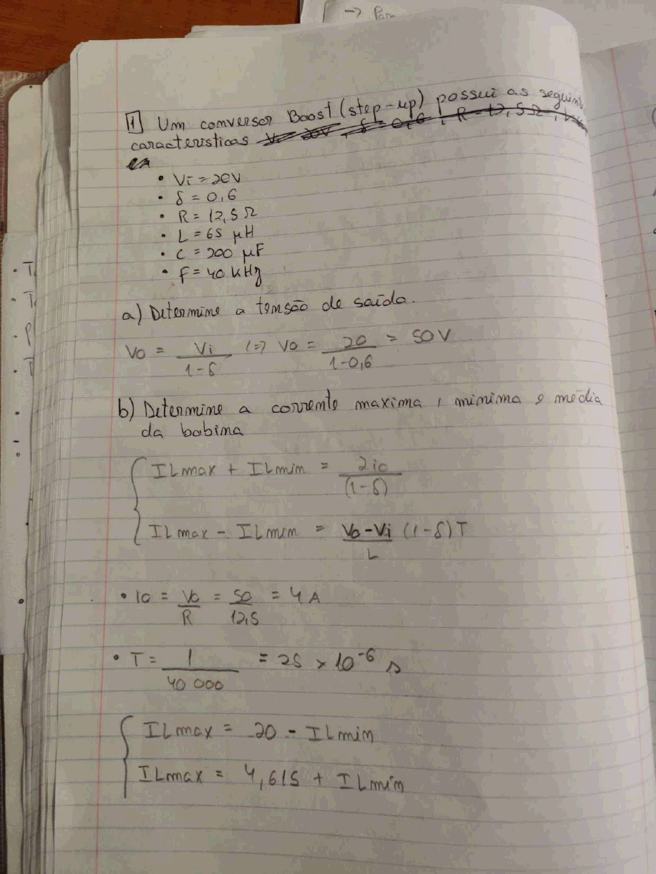 → Par
1 Um conversor Boost (step-up) possui as seguin
características Vi = 20V, δ = 0,6, R = 12,5Ω,
• Vi = 20V
• δ = 0,6
• R = 12,5 Ω
• L = 65 μH
• C = 200 μF
• f = 40 kHz
a) Determine a tensão de saída.
Vo = Vi / (1-δ) (=) Vo = 20 / (1-0,6) = 50 V
b) Determine a corrente maxima, minima e média
da bobina
ILmax + ILmin = 2io / (1-δ)
ILmax - ILmin = (Vo-Vi) / L (1-δ)T
• Io = Vo / R = 50 / 12,5 = 4 A
• T = 1 / 40 000 = 25 × 10⁻⁶ s
ILmax = 20 - ILmin
ILmax = 4,615 + ILmin